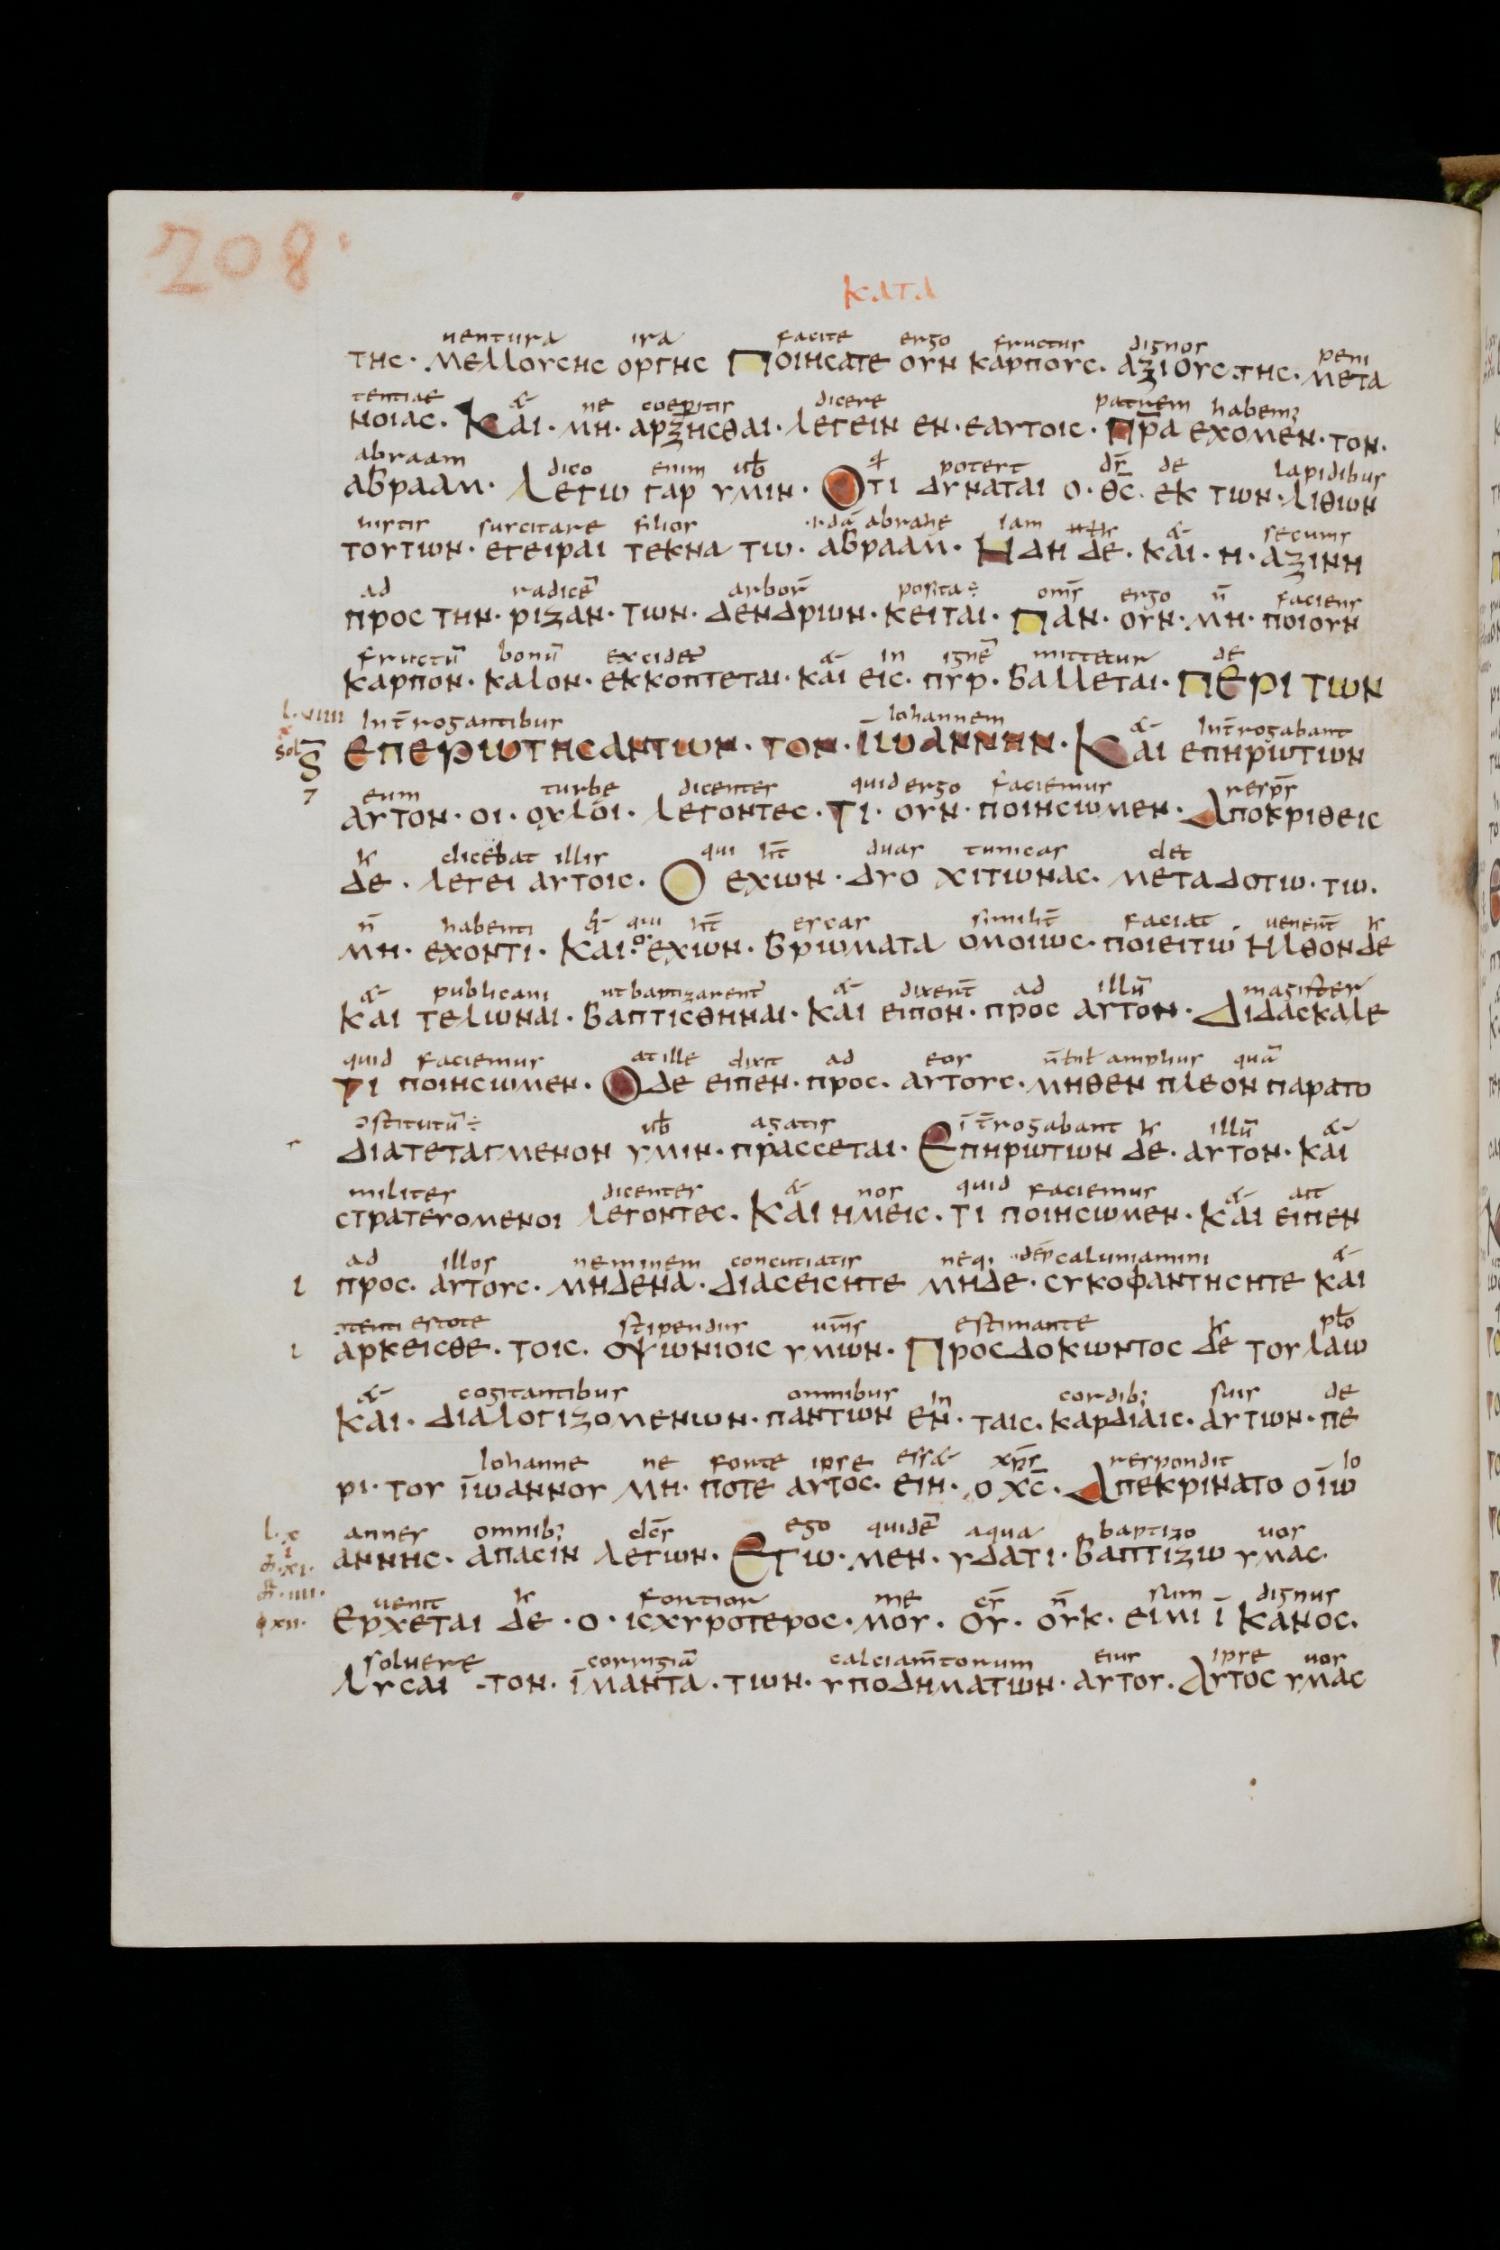 208
ΚΑΤΑ
uentura ira facite ergo fructus dignos peni
ΤΗC · ΜΕΛΛΟΥCΗC ΟΡΓΗC ΠΟΙΗCΑΤΕ ΟΥΝ ΚΑΡΠΟΥC · ΑΞΙΟΥC · ΤΗC · ΜΕΤΑ
tentiae & ne coepitis dicere patrem habem;
ΝΟΙΑC · ΚΑΙ · ΜΗ · ΑΡΞΗCΘΑΙ · ΛΕΓΕΙΝ ΕΝ · ΕΑΥΤΟΙC · Π̅Ρ̅Α ΕΧΟΜΕΝ · ΤΟΝ ·
abraam dico enim potest dš de lapidibus
ΑΒΡΑΑΜ · ΛΕΓΩ ΓΑΡ ΥΜΙΝ · ΟΤΙ ΔΥΝΑΤΑΙ Ο · Θ̅C̅ · ΕΚ ΤΩΝ · ΛΙΘΩΝ
istis suscitare filios abrahe Iam & securis
ΤΟΥΤΩΝ · ΕΓΕΙΡΑΙ ΤΕΚΝΑ ΤΩ · ΑΒΡΑΑΜ · ΗΔΗ ΔΕ · ΚΑΙ · Η · ΑΞΙΝΗ
ad radicē arborū posita÷ om̅s ergo n̅ faciens
ΠΡΟC ΤΗΝ · ΡΙΖΑΝ · ΤΩΝ · ΔΕΝΔΡΩΝ · ΚΕΙΤΑΙ · ΠΑΝ · ΟΥΝ · ΜΗ · ΠΟΙΟΥΝ
fructū bonū excidet̄ & in ignē mittetur de
ΚΑΡΠΟΝ · ΚΑΛΟΝ · ΕΚΚΟΠΤΕΤΑΙ · ΚΑΙ ΕΙC · ΠΥΡ · ΒΑΛΛΕΤΑΙ · ΠΕΡΙ ΤΩΝ
l. uiiii Int̄rogantibus Iohannem & Int̄rogabant
sol ΕΠΕΡΩΤΗCΑΝΤΩΝ · ΤΟΝ · ΪΩΑΝΝΗΝ · ΚΑΙ ΕΠΗΡΩΤΩΝ
eum turbe dicentes quid ergo faciemus resp̄s
ΑΥΤΟΝ · ΟΙ · ΟΧΛΟΙ · ΛΕΓΟΝΤΕC · ΤΙ · ΟΥΝ · ΠΟΙΗCΩΜΕΝ · ΑΠΟΚΡΙΘΕΙC
dicebat illis qui ht̄ duas tunicas det
ΔΕ · ΛΕΓΕΙ ΑΥΤΟΙC · Ο ΕΧΩΝ · ΔΥΟ ΧΙΤΩΝΑC · ΜΕΤΑΔΟΤΩ · ΤΩ ·
n̅ habenti & qui ht̄ escas similit̄ faciat uenert̄
ΜΗ · ΕΧΟΝΤΙ · ΚΑΙ · Ο ΕΧΩΝ · ΒΡΩΜΑΤΑ ΟΜΟΙΩC · ΠΟΙΕΙΤΩ ΗΛΘΟΝ ΔΕ
& publicani ut baptizarent̄ & dixert̄ ad illū magister
ΚΑΙ ΤΕΛΩΝΑΙ · ΒΑΠΤΙCΘΗΝΑΙ · ΚΑΙ ΕΙΠΟΝ · ΠΡΟC ΑΥΤΟΝ · ΔΙΔΑCΚΑΛΕ
quid faciemus at ille dixit ad eos amplius quā
ΤΙ ΠΟΙΗCΩΜΕΝ · Ο ΔΕ ΕΙΠΕΝ · ΠΡΟC · ΑΥΤΟΥC · ΜΗΘΕΝ ΠΛΕΟΝ ΠΑΡΑ ΤΟ
ɔstitutū÷ agatis īt̄rogabant illū &
ΔΙΑΤΕΤΑΓΜΕΝΟΝ ΥΜΙΝ · ΠΡΑCCΕΤΑΙ · ΕΠΗΡΩΤΩΝ ΔΕ · ΑΥΤΟΝ · ΚΑΙ
milites dicentes & nos quid faciemus & ait
CΤΡΑΤΕΥΟΜΕΝΟΙ ΛΕΓΟΝΤΕC · ΚΑΙ ΗΜΕΙC · ΤΙ ΠΟΙΗCΩΜΕΝ · ΚΑΙ ΕΙΠΕΝ
ad illos neminem concutiatis neq; calumiamini &
ΠΡΟC · ΑΥΤΟΥC · ΜΗΔΕΝΑ · ΔΙΑCΕΙCΗΤΕ ΜΗΔΕ · CΥΚΟΦΑΝΤΗCΗΤΕ ΚΑΙ
ɔtenti estote stipendiis um̅s estimante
ΑΡΚΕΙCΘΕ · ΤΟΙC · ΟΨΩΝΙΟΙC ΥΜΩΝ · ΠΡΟCΔΟΚΩΝΤΟC ΔΕ ΤΟΥ ΛΑΩ
& cogitantibus omnibus in cordib; suis de
ΚΑΙ · ΔΙΑΛΟΓΙΖΟΜΕΝΩΝ · ΠΑΝΤΩΝ ΕΝ · ΤΑΙC · ΚΑΡΔΙΑΙC · ΑΥΤΩΝ · ΠΕ
Iohanne ne forte ipse ess& xp̄s respondit Io
ΡΙ · ΤΟΥ ΪΩΑΝΝΟΥ ΜΗ · ΠΟΤΕ ΑΥΤΟC · ΕΙΗ · Ο Χ̅C̅ · ΑΠΕΚΡΙΝΑΤΟ Ο ΪΩ
l. x annes omnib; ego quidē aqua baptizo uos
ΑΝΝΗC · ΑΠΑCΙΝ ΛΕΓΩΝ · ΕΓΩ · ΜΕΝ · ΥΔΑΤΙ · ΒΑΠΤΙΖΩ ΥΜΑC ·
uenit fortior me n̅ sum dignus
ΕΡΧΕΤΑΙ ΔΕ · Ο · ΙCΧΥΡΟΤΕΡΟC · ΜΟΥ · ΟΥ · ΟΥΚ · ΕΙΜΙ ΪΚΑΝΟC ·
soluere corrigiā calciam̄torum eius ipse uos
ΛΥCΑΙ · ΤΟΝ · ΪΜΑΝΤΑ · ΤΩΝ · ΥΠΟΔΗΜΑΤΩΝ · ΑΥΤΟΥ · ΑΥΤΟC ΥΜΑC